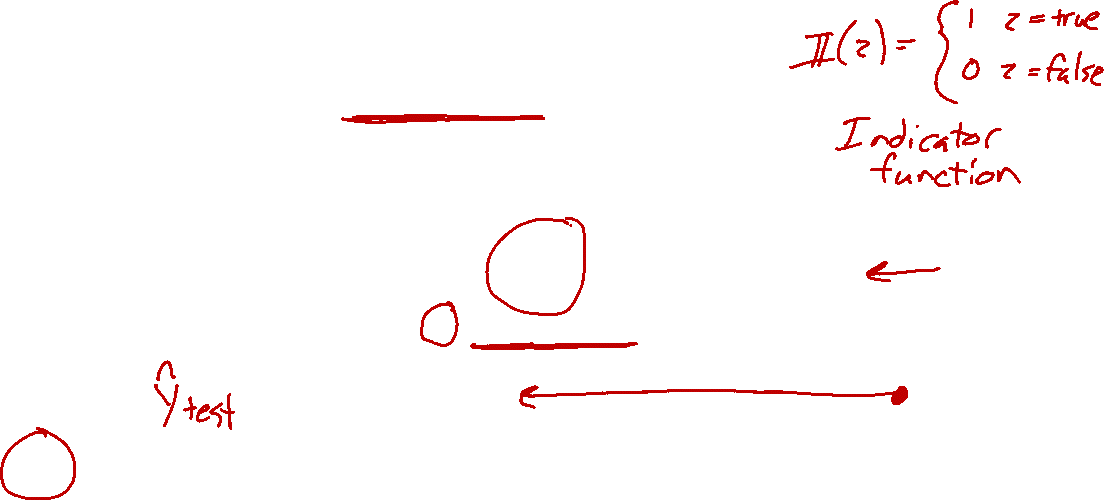 𝕀(z) = { 1 z = true
0 z = false
Indicator
function
ŷtest